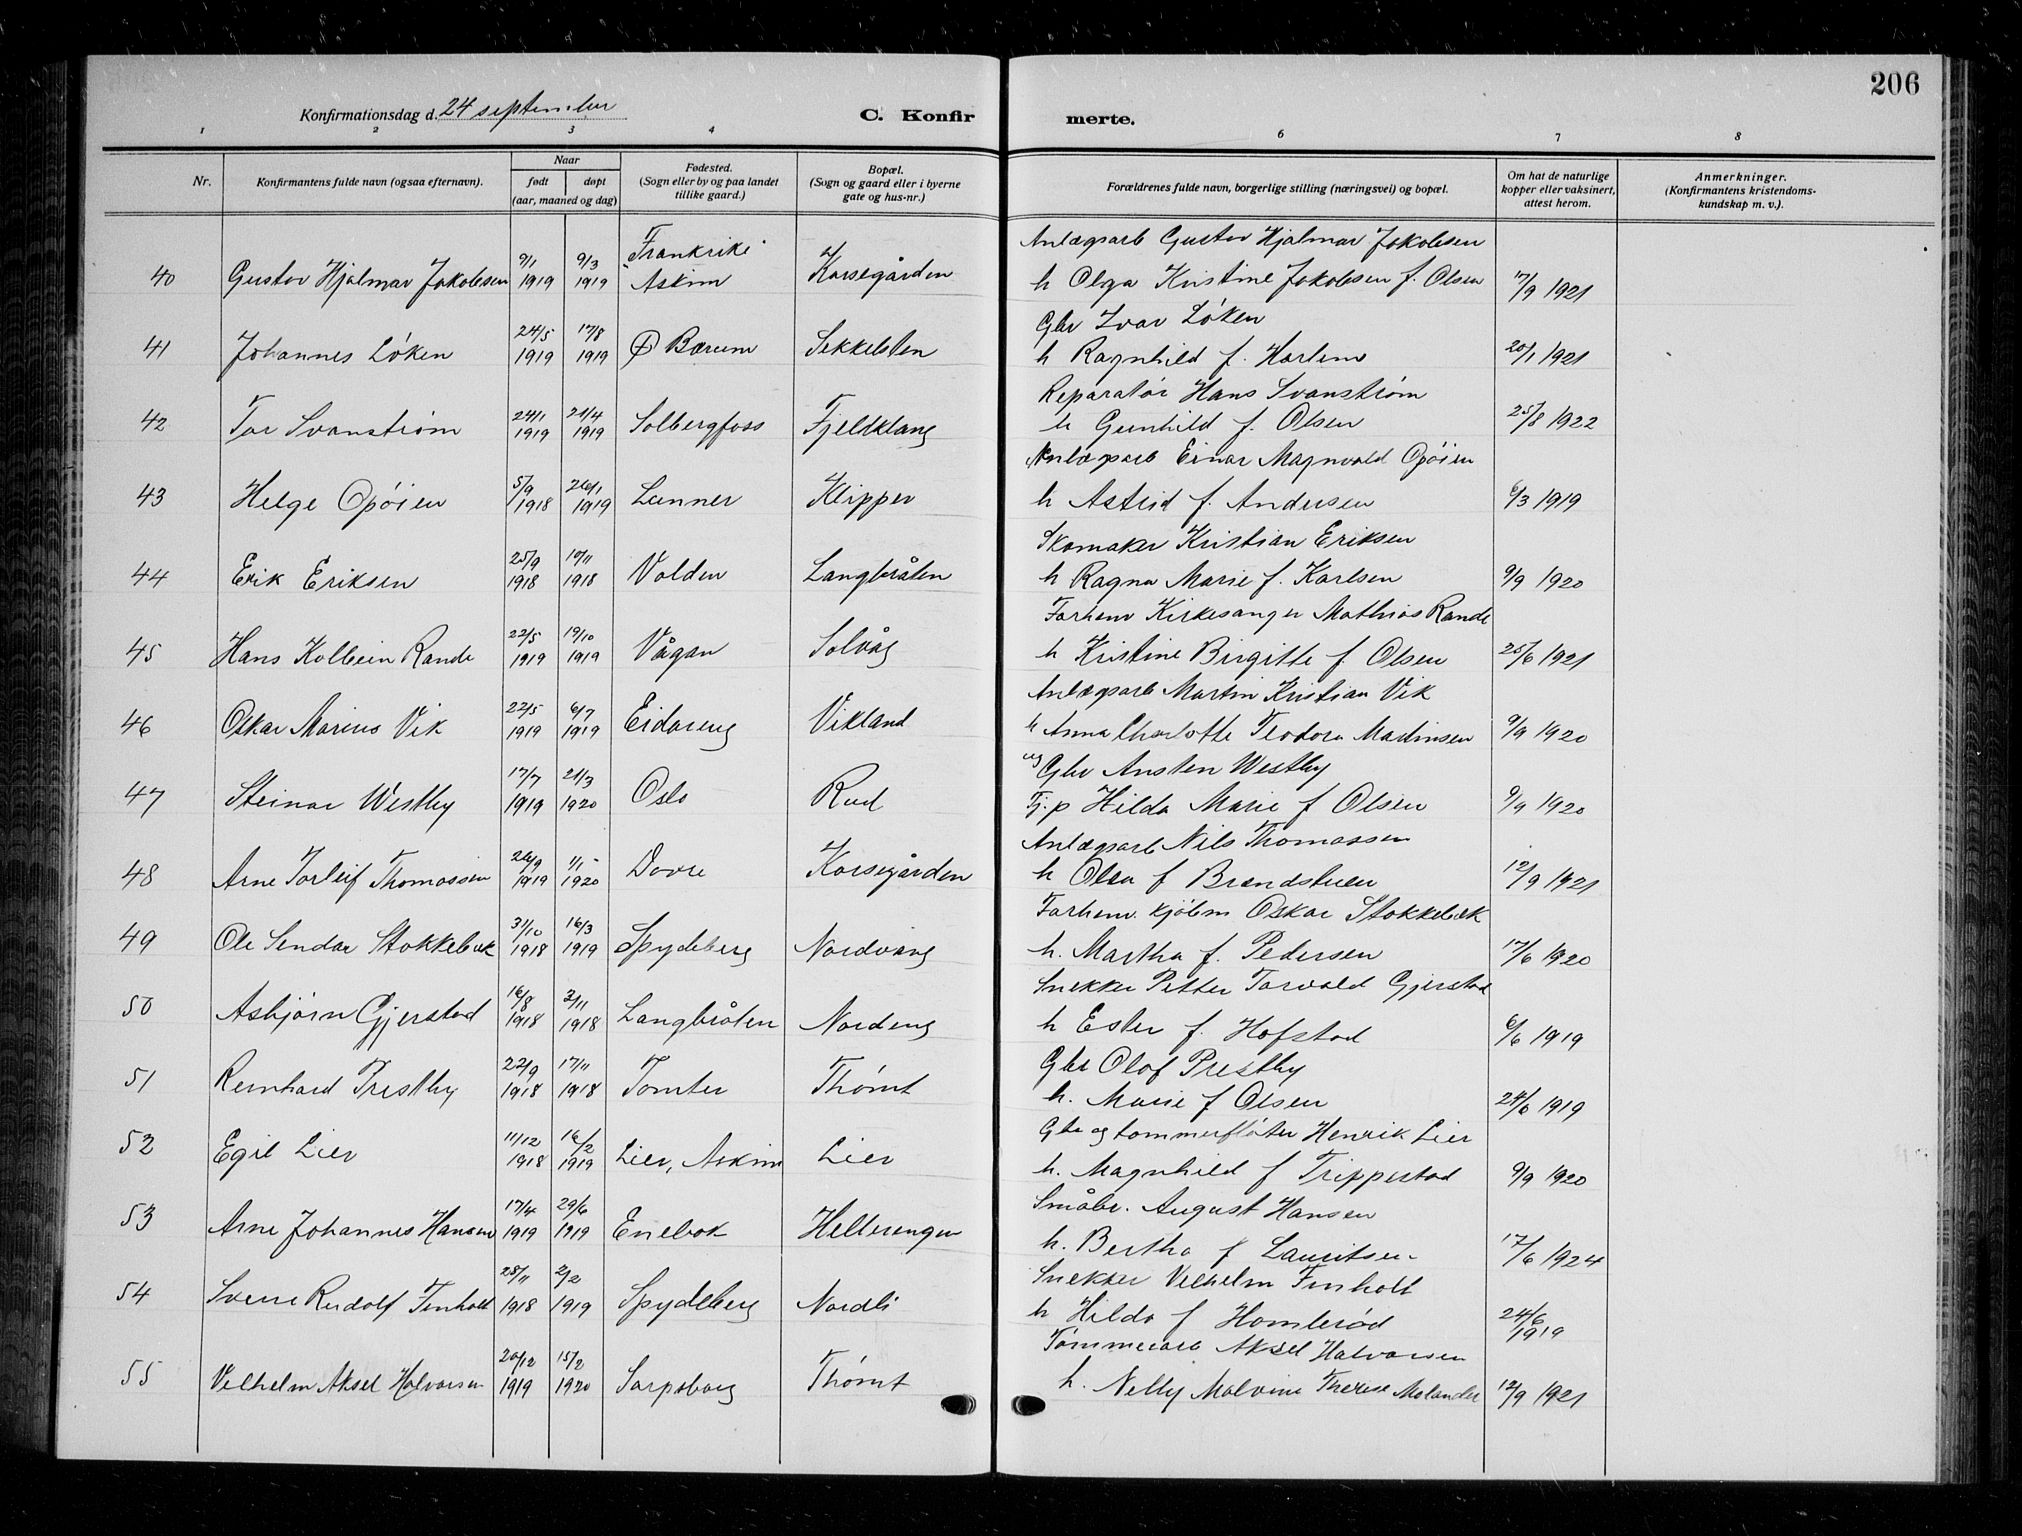 206
Konfirmationsdag d. 24 september
C. Konfir merte.
1 2 3 4 5 6 7 8
Nr.
Konfirmantens fulde navn (ogsaa efternavn).
Naar
født døpt
(aar, maaned og dag)
Fødested.
(Sogn eller by og paa landet
tillike gaard.)
Bopæl.
(Sogn og gaard eller i byerne
gate og hus-nr.)
Forældrenes fulde navn, borgerlige stilling (næringsvei) og bopæl.
Om hat de naturlige
kopper eller vaksinert,
attest herom.
Anmerkninger.
(Konfirmantens kristendoms-
kundskap m. v.).
Frankrike Anlægsarb Gustav Hjalmar Jakobsen
40 Gustav Hjalmar Jakobsen 9/1 1919 9/3 1919 Askim Korsegården h Olga Kristine Jakobsen f. Olsen 17/9 1921
Gbr Ivar Løken
41 Johannes Løken 24/5 1919 17/8 1919 Bærum Sekkelsten h Ragnhild f. Harlem 20/1 1921
Reparatør Hans Svanstrøm
42 Tor Svanstrøm 24/1 1919 21/4 1919 Solbergfoss Fjeldklang h Gunhild f. Olsen 25/8 1922
Anlægsarb Einar Magnvald Opøien
43 Helge Opøien 5/9 1918 26/1 1919 Lunner Klipper h Astrid f. Andersen 6/3 1919
Skomaker Kristian Eriksen
44 Erik Eriksen 25/9 1918 10/11 1918 Volden Langbråten h Ragna Marie f. Karlsen 9/9 1920
Forhenv Kirkesanger Mathias Rande
45 Hans Kolbein Rande 22/5 1919 19/10 1919 Vågan Solvåg h Kristine Birgitte f. Olsen 25/6 1921
Anlægsarb Martin Kristian Vik
46 Oskar Marius Vik 22/5 1919 6/7 1919 Eidareng Vikland h Anna Charlotte Teodora Martinsen 9/9 1920
ug Gbr Ansten Westby
47 Steinar Westby 17/7 1919 21/3 1920 Oslo Rud Tj.p Hilda Marie f Olsen 9/9 1920
Anlægsarb Nils Thomassen
48 Arne Torleif Thomassen 26/9 1919 1/1 1920 Dovre Korsegården h Olea f Brændstuen 12/9 1921
Forhenv. kjøbm Oskar Stokkebæk
49 Ole Sendar Stokkebæk 31/10 1918 16/3 1919 Spydeberg Nordvang h. Martha f. Pedersen 17/6 1920
Snekker Petter Torvald Gjerstad
50 Asbjørn Gjerstad 16/8 1918 3/11 1918 Langbråten Nordeng h Ester f. Hofstad 6/6 1919
Gbr Olof Prestby
51 Reinhard Prestby 22/9 1918 17/11 1918 Tomter Thømt h. Marie f Olsen 24/6 1919
Gbr og tømmerfløter Henrik Lier
52 Egil Lier 11/12 1918 16/2 1919 Lier, Askim Lier h. Magnhild f Trippestad 9/9 1920
Småbr. August Hansen
53 Arne Johannes Hansen 17/4 1919 29/6 1919 Enebak Hellerengen h. Bertha f Lauritsen 17/6 1924
Snekker Vilhelm Finholt
54 Sverre Rudolf Finholt 28/11 1918 2/2 1919 Spydeberg Nordli h Hilda f Homlerød 24/6 1919
Tømmerarb Aksel Halvorsen
55 Vilhelm Aksel Halvorsen 20/12 1919 15/2 1920 Sarpsborg Thømt h. Nelly Malvine Therese Molander 12/9 1921